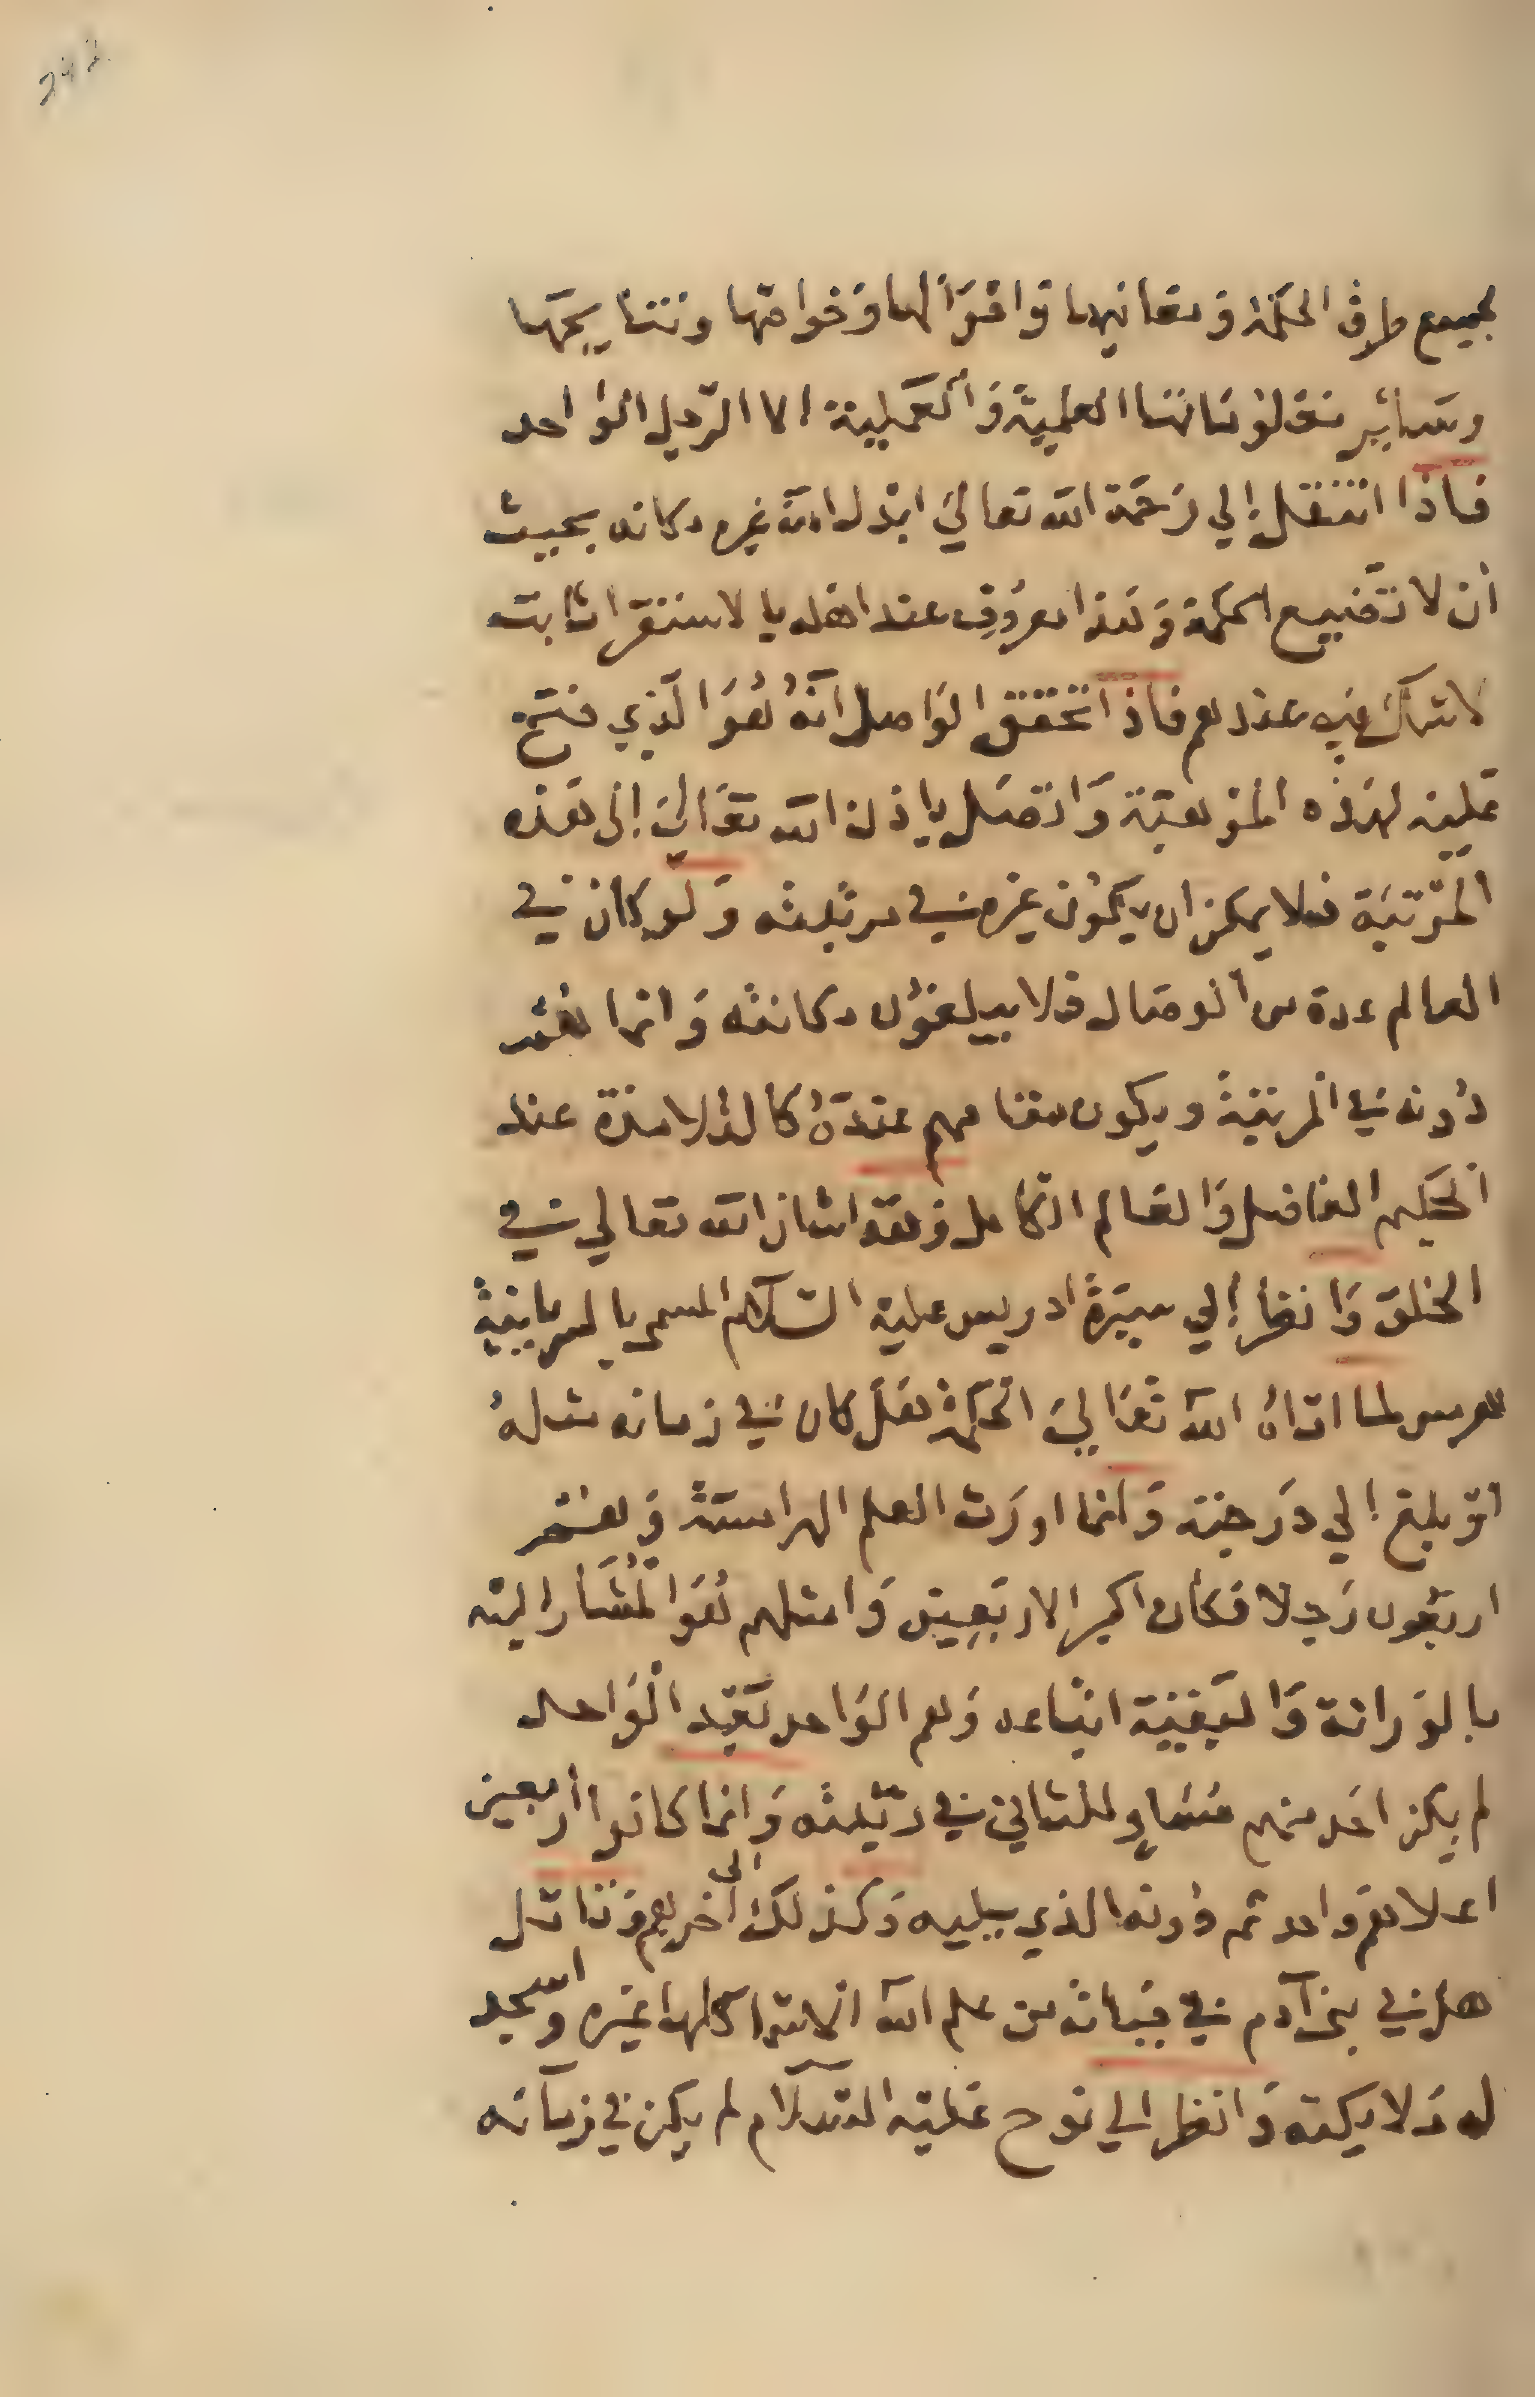 لجميع طرق الحكمة ومعانيها واقوالها وخواصها ونتايجها
وسائر معلوماتنا العلمية والعملية الا الرجل الواحد
فاذا انتقل الي رحمة الله تعالي ابدل الله غيره مكانه بحيث
ان لا تضيع الحكمة وهذا معروف عند اهله بالاستقرا ثابت
لا شك فيه عندهم فاذا تحقق الواصل انه هو الذي فتح
عليه لهذه الموهبة واتصل باذن الله تعالي الى هذه
المرتبة فلا يمكن ان يكون غيره في مرتبته ولو كان في
العالم عدة من الوصال فلا يبلغون مكانته وانما هم
دونه في المرتبة ويكون مقامهم عنده كالتلامذة عند
الحكيم الفاضل والعالم الكامل وهذا شان الله تعالي في
الخلق وانظر الي سيرة ادريس عليه السلام المسمى بالسريانية
هرمس لما اتاه الله تعالي الحكمة هل كان في زمانه مثله
او بلغ الي درجته وانما اورث العلم الهرامسة وهم
اربعون رجلا فكان اكبر الاربعين وامثلهم هو المشار اليه
بالوراثة والبقية اتباعه وهم الواحد بعد الواحد
لم يكن احد منهم مساو للثاني في رتبته وانما كانوا اربعين
اعلاهم واحد ثم دونه الذي يليه وكذلك الى اخرهم وتامل
هل في بني آدم في من علم الله الاسما كلها غيره واسجد
له ملايكته وانظر الي نوح عليه السلام لم يكن في زمانه